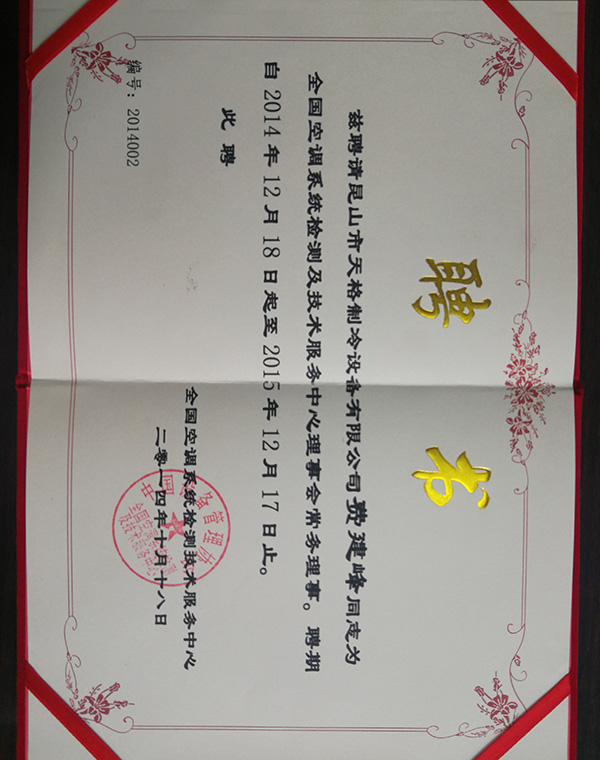 聘书
兹聘请昆山市天格制冷设备有限公司费建峰同志为
全国空调系统检测及技术服务中心理事会常务理事。聘期
自2014年12月18日起至2015年12月17日止。
此聘
全国空调系统检测技术服务中心
二零一四年十月十八日
编号：2014002